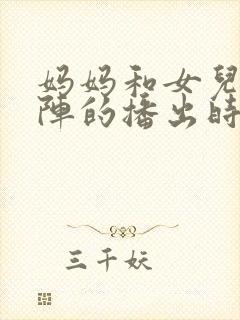 妈妈和女兒
陣的播出時
三千妖